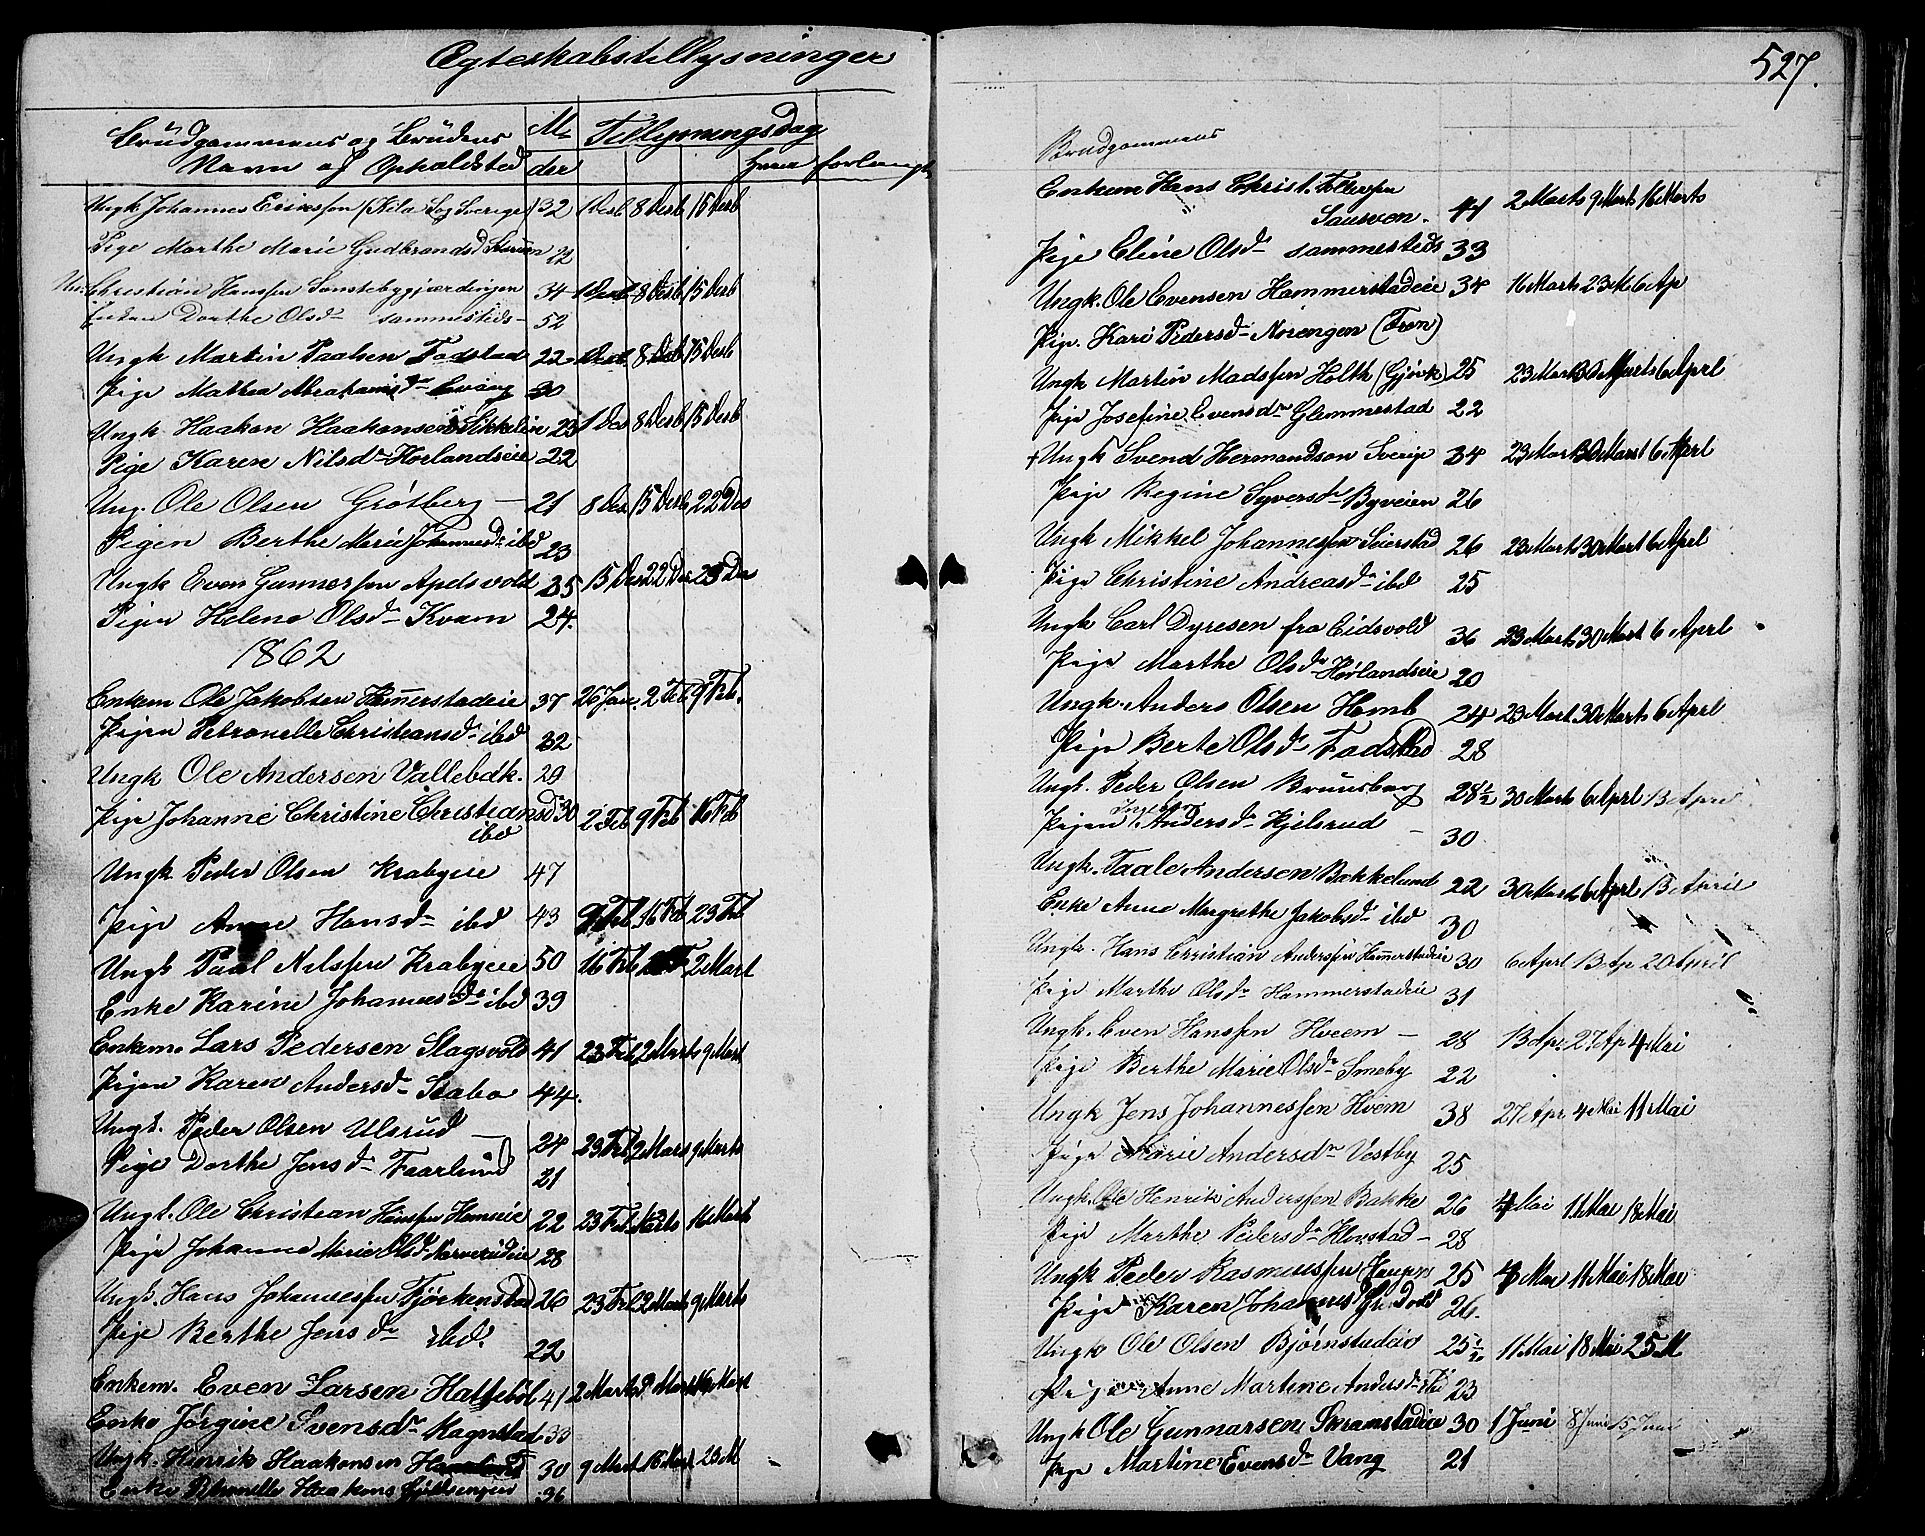 Ægteskabstillysninger
Brudgommens og Brudens
Navn og Opholdsted
der
Tillysningsdag
Ungk Johannes Eriksen (Kila Sog Sverige) 32 1 Desb 8 Desb 15 Desb
Pige Marthe Marie Gudbrandsd 22
Christian Hansen 34 1 Desb 8 Desb 15 Desb
Enken Dorthe Olsdr sammesteds 52
Ungk Martin Paulsen Fadstad 22 1 Desb 8 Desb 15 Desb
Pige Mathea 30
Ungk Haakon Haakonsen Sikkelien 23 1 Des 8 Desb 15 Desb
Pige Karen Nilsdr Horlandseie 22
Ung. Ole Olsen Grøtberg 21 8 Des 15 Desb 22 Des
Pigen Berthe Marie Johannesdr ibd 23
Ungk Even Gunnersen Apelsvold 35 15 Des 22 Des 29 Des
Pigen Helene Olsdr Kvam 24.
1862
Enkem Ole Jakobsen Hamerstadeie 37 26 Jan. 2 Feb 9 Feb.
Pigen Petronelle Christiansdr ibd 32
Ungk Ole Andersen Vallebdk. 29
Pige Johanne Christine Christiansd 30 2 Feb 9 Feb 16 Feb
ibd
Ungk Peder Olsen Krabyeie 47
Pige Anne Hansdr ibd 43 9 Feb 16 Feb 23 Feb
Ungk Paal Nilssen Krabyeie 50 16 Feb 2 Mart
Enke Karine Johannesdr ibd 39
Enkem. Lars Pedersen Slagsvold 41 23 Feb 2 Marts 9 Mart
Pigen Karen Andersdr Stabo 44.
Ungk. Peder Olsen Ulsrud 24 23 Feb 2 Mars 9 Marts
Pige Dorthe Jensdr Faarlund 21
Ungk. Ole Christian Hansen 22 23 Feb Marts 16 Mart
Pige Johanne Marie Olsd 28
Ungk. Hans Johannesen Fjørkenstad 26 23 Feb 2 Marts 9 Marts
Pige Berthe Jensdr ibd. 22
Enkem. Even Larsen 41 2 Marts 9 Marts 16 Mart
Enke Jørgine Svensdr Kagnstad 33
Ungk. Henrik Haakonsen 30 9 Mart 16 Mart 23 M
Enke Petronelle Haakons 36
527.
Brudgommens
Enkem Hans Christ. Tollefsen
44 2 Marts 9 Marts 16 Marts
Pige Eline Olsdr sammesteds 33
Ungk. Ole Evensen Hammerstadeie 34 16 Marts 23 M 6 Ap
Pige. Kari Pedersdr Norengen (Fron)
Ungk Martin Madssen Holth (Gjøvk) 25 23 Mart 30 Marts 6 Aprl
Pige Josefine Evensdr Glemmestad 22
+ Ungk Svend Hermandson Sverige 34 23 Mart 30 Marst 6 Aperl
Pige Regine Syversdr Byveien 26
Ungk Mikkel Johannessen Seierstad 26 23 Mart 30 Mart 6 Aprl
Pige Christine Andreasdr ibd 25
Ungk Carl Dyresen fra Eidsvold 36 23 Marts 30 Mart 6 Aprl
Pige Marthe Olsdr Hørlandseie 20
Ungk. Anders Olsen Homb 24 23 Mart 30 Marts 6 April
Pige Berte Olsdr Fadstad 28
Ungk. Peder Olsen Brunsberg 28½ 30 Marts 6 Aprl 13 April
Pigen Andersdr Hjelsrud 30
Ungk. Paale Andersen Bakkelund 22 30 Marts 6 Aprl 13 April
Enke Anne Margrethe Jakobsdr ibd 30
Ungk. Hans Christian Anderssen Hamerstadeie 30 6 Aprl 13 Ap 20 April
Pige Marthe Olsdr Hammerstadeie 31
Ungk. Even Hanssen Hveem 28 13 Ap. 27 Ap 4 Mai
Pige Berthe Marie Olsdr Smeby 22
Ungk Jens Johannessen Hvem 38 27 Apr 4 Mai 11 Mai
Pige Marie Andersdr Vestby 25
Ungk. Ole Henrik Anderssen Bakke 26 4 Mai 11 Mai 18 Mai
Pige Marthe Pedersdr Klovstad 28
Ungk Peder Rasmussen 25 4 Mai 11 Mai 18 Mai
Pige Karen Johannesd 26.
Ungk Ole Olsen Bjørnstadeie 25½ 11 Mai 18 Mai 25 M
Pige Anne Martine Andersdr ibd 23
Ungk Ole Gunnarsen Skramstadeie 30 1 Juni 8 Juni 15 Juni
Pige Martine Evensdr Vang 21